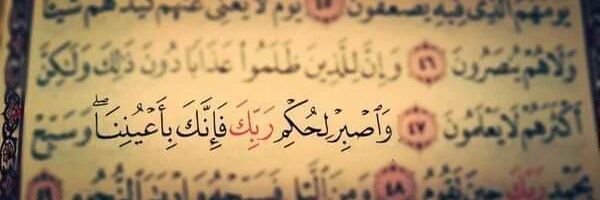 يَوْمَهُمُ ٱلَّذِى فِيهِ يُصْعَقُونَ ٤٥ يَوْمَ لَا يُغْنِى عَنْهُمْ كَيْدُهُمْ شَيْـًٔا
وَلَا هُمْ يُنصَرُونَ ٤٦ وَإِنَّ لِلَّذِينَ ظَلَمُوا۟ عَذَابًا دُونَ ذَٰلِكَ وَلَـٰكِنَّ
أَكْثَرَهُمْ لَا يَعْلَمُونَ ٤٧ وَٱصْبِرْ لِحُكْمِ رَبِّكَ فَإِنَّكَ بِأَعْيُنِنَا ۖ وَسَبِّحْ
بِحَمْدِ رَبِّكَ حِينَ تَقُومُ ٤٨ وَمِنَ ٱلَّيْلِ فَسَبِّحْهُ وَإِدْبَـٰرَ ٱلنُّجُومِ ٤٩